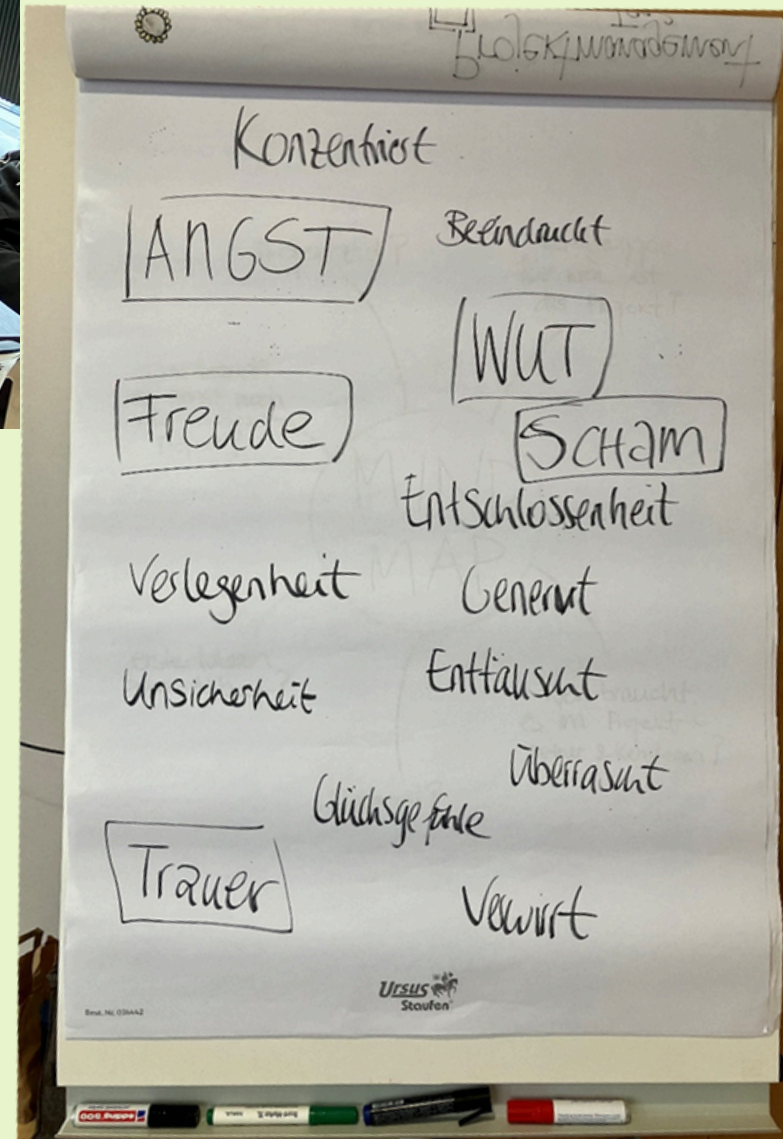 Projektmanagement
Konzentriert
ANGST
Beeindruckt
WUT
Freude
SCHAM
Entschlossenheit
Verlegenheit
Genervt
Unsicherheit
Enttäuscht
Überrascht
Glücksgefühle
Trauer
Verwirrt
Ursus
Staufen
Best. Nr. 036442
edding 500